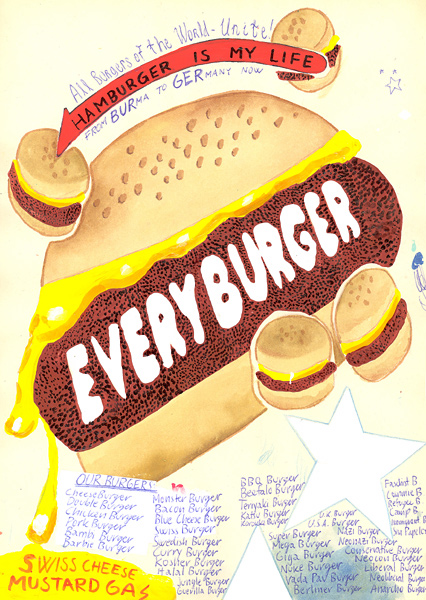 All Burgers of the World - Unite!
HAMBURGER IS MY LIFE
FROM BURMA TO GERMANY NOW
EVERYBURGER
OUR BURGERS
CheeseBurger
Double Burger
Chicken Burger
Pork Burger
Bambi Burger
Barbie Burger
Monster Burger
Bacon Burger
Blue Cheese Burger
Swiss Burger
Swedish Burger
Curry Burger
Kosher Burger
Halal Burger
Jungle Burger
Guerilla Burger
BBQ Burger
Beefalo Burger
Teriyaki Burger
Burger
Burger
Super Burger
Mega Burger
Olga Burger
Nuke Burger
Vada Pav Burger
Berliner Burger
U.K. Burger
U.S.A. Burger
Nazi Burger
Neonazi Burger
Conservative Burger
Neocon Burger
Liberal Burger
Neoliberal Burger
Anarcho Burger
B
B
Camp B
SWISS CHEESE
MUSTARD GAS